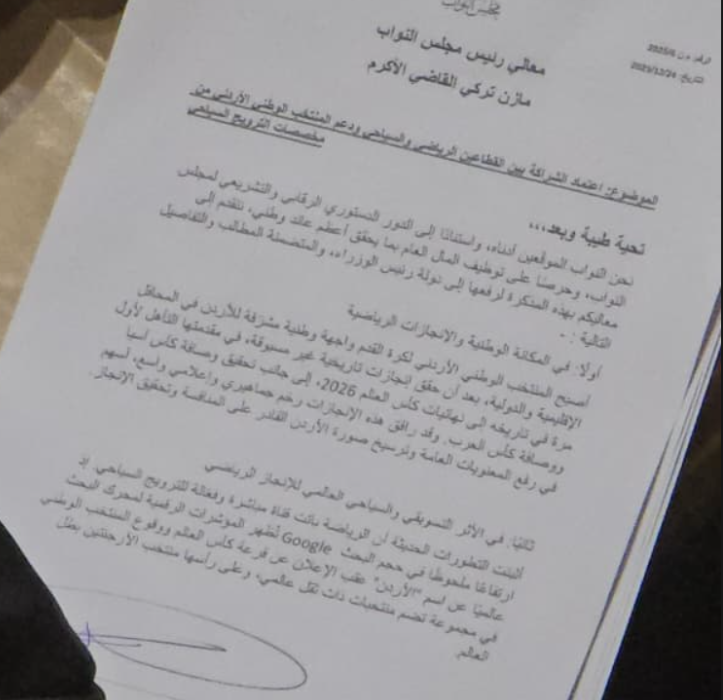 مجلس النواب
الرقم: م ن 2025/6
التاريخ: 2025/12/24
معالي رئيس مجلس النواب
مازن تركي القاضي الأكرم
الموضوع: اعتماد الشراكة بين القطاعين الرياضي والسياحي ودعم المنتخب الوطني الأردني من
مخصصات الترويج السياحي
تحية طيبة وبعد،،،
نحن النواب الموقعين أدناه، واستنادًا إلى الدور الدستوري الرقابي والتشريعي لمجلس
النواب، وحرصًا على توظيف المال العام بما يحقق أعظم عائد وطني، نتقدم إلى
معاليكم بهذه المذكرة لرفعها إلى دولة رئيس الوزراء، والمتضمنة المطالب والتفاصيل
التالية : -
أولًا: في المكانة الوطنية والإنجازات الرياضية
أصبح المنتخب الوطني الأردني لكرة القدم واجهة وطنية مشرّفة للأردن في المحافل
الإقليمية والدولية، بعد أن حقق إنجازات تاريخية غير مسبوقة، في مقدمتها التأهل لأول
مرة في تاريخه إلى نهائيات كأس العالم 2026، إلى جانب تحقيق وصافة كأس آسيا
ووصافة كأس العرب. وقد رافق هذه الإنجازات زخم جماهيري وإعلامي واسع، أسهم
في رفع المعنويات العامة وترسيخ صورة الأردن القادر على المنافسة وتحقيق الإنجاز.
ثانيًا: في الأثر التسويقي والسياحي العالمي للإنجاز الرياضي
أثبتت التطورات الحديثة أن الرياضة باتت قناة مباشرة وفعّالة للترويج السياحي. إذ
تُظهر المؤشرات الرقمية لمحرك البحث Google ارتفاعًا ملحوظًا في حجم البحث
عالميًا عن اسم "الأردن" عقب الإعلان عن قرعة كأس العالم ووقوع المنتخب الوطني
في مجموعة تضم منتخبات ذات ثقل عالمي، وعلى رأسها منتخب الأرجنتين بطل
العالم.